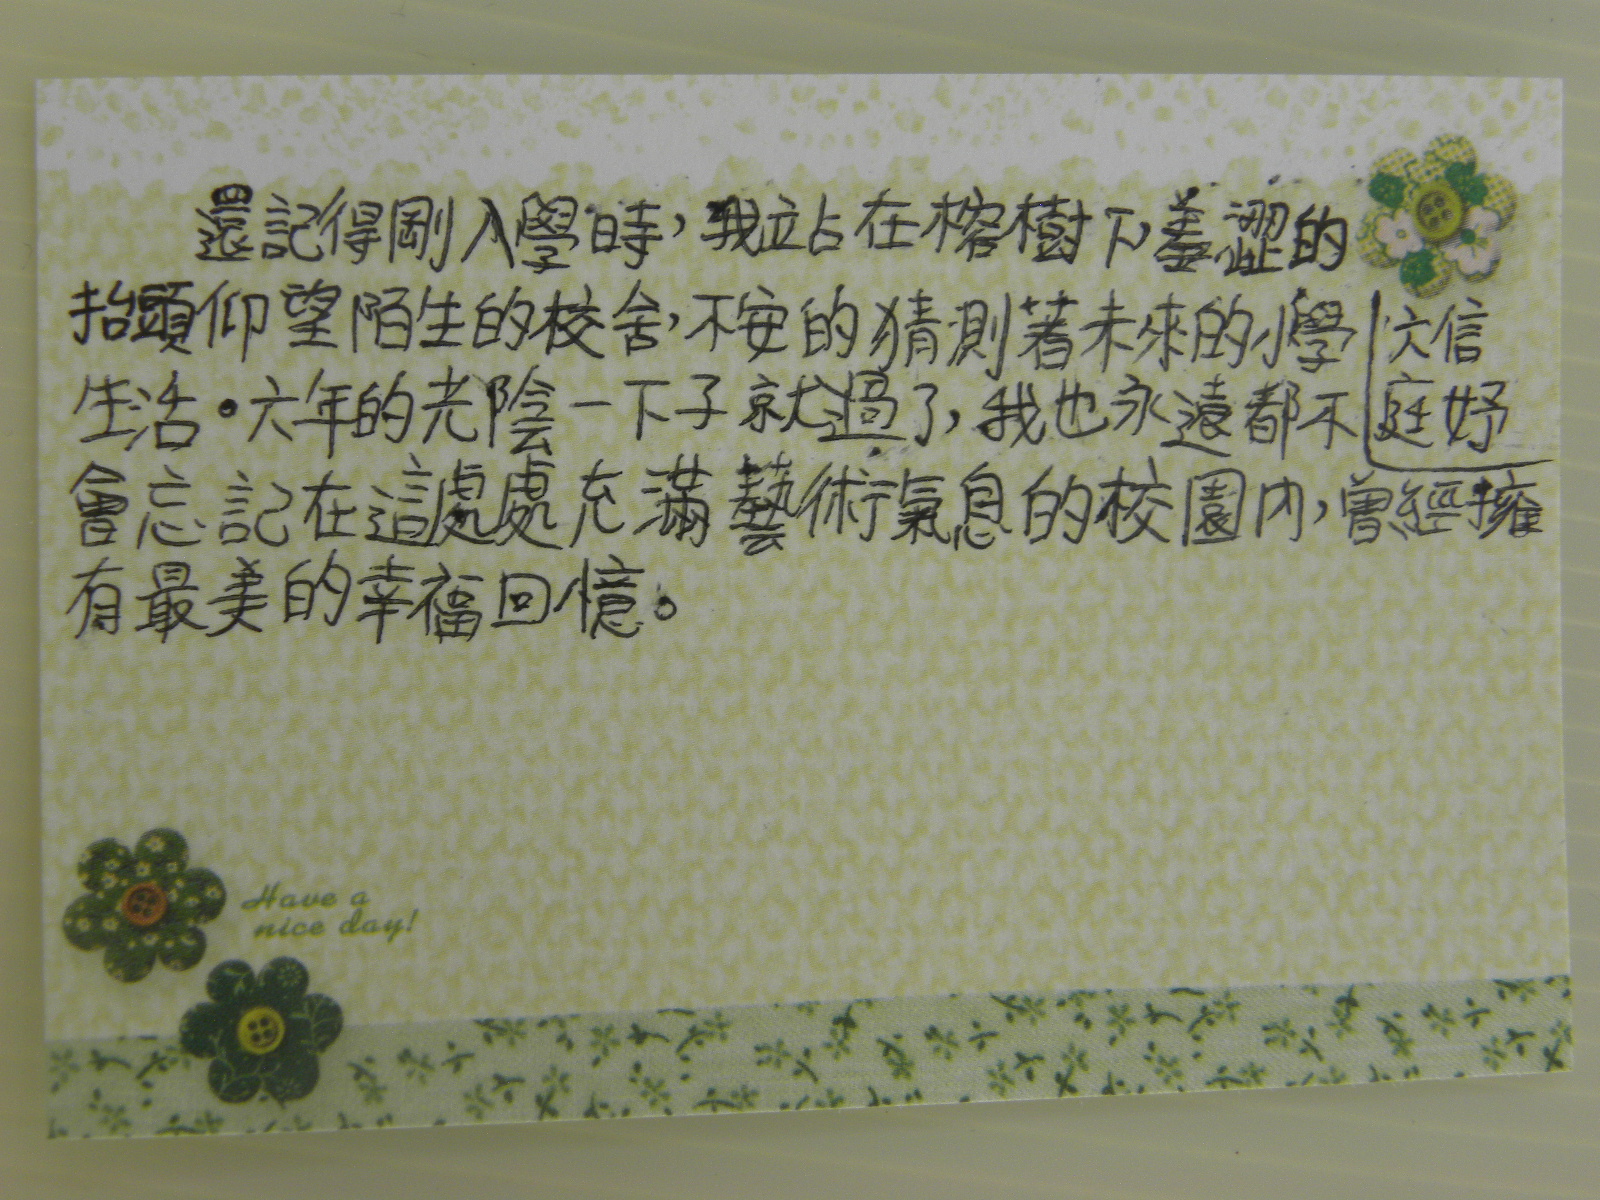 還記得剛入學時，我站在榕樹下羞澀的
抬頭仰望陌生的校舍，不安的猜測著未來的小學
生活。六年的光陰一下子就過了，我也永遠都不
會忘記在這處處充滿藝術氣息的校園內，曾經擁
有最美的幸福回憶。
六信
庭妤
Have a
nice day!